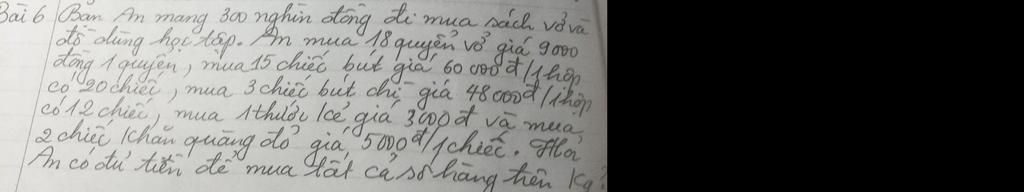 Bài 6 Bạn An mang 300 nghìn đồng đi mua sách vở và
đồ dùng học tập. An mua 18 quyển vở giá 9000
đồng 1 quyển, mua 15 chiếc bút giá 60 000đ/1 hộp
có 20 chiếc, mua 3 chiếc bút chì giá 48000đ/1 hộp
có 12 chiếc, mua 1 thước kẻ giá 3000đ và mua
2 chiếc khăn quàng đỏ giá 5000đ/1 chiếc. Hỏi
An có đủ tiền để mua tất cả số hàng trên kg?